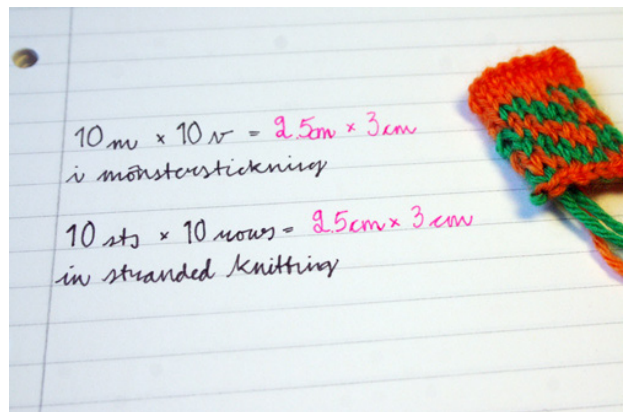 10 m × 10 v = 2.5cm × 3 cm
i mönsterstickning
10 sts × 10 rows = 2.5cm × 3 cm
in stranded knitting